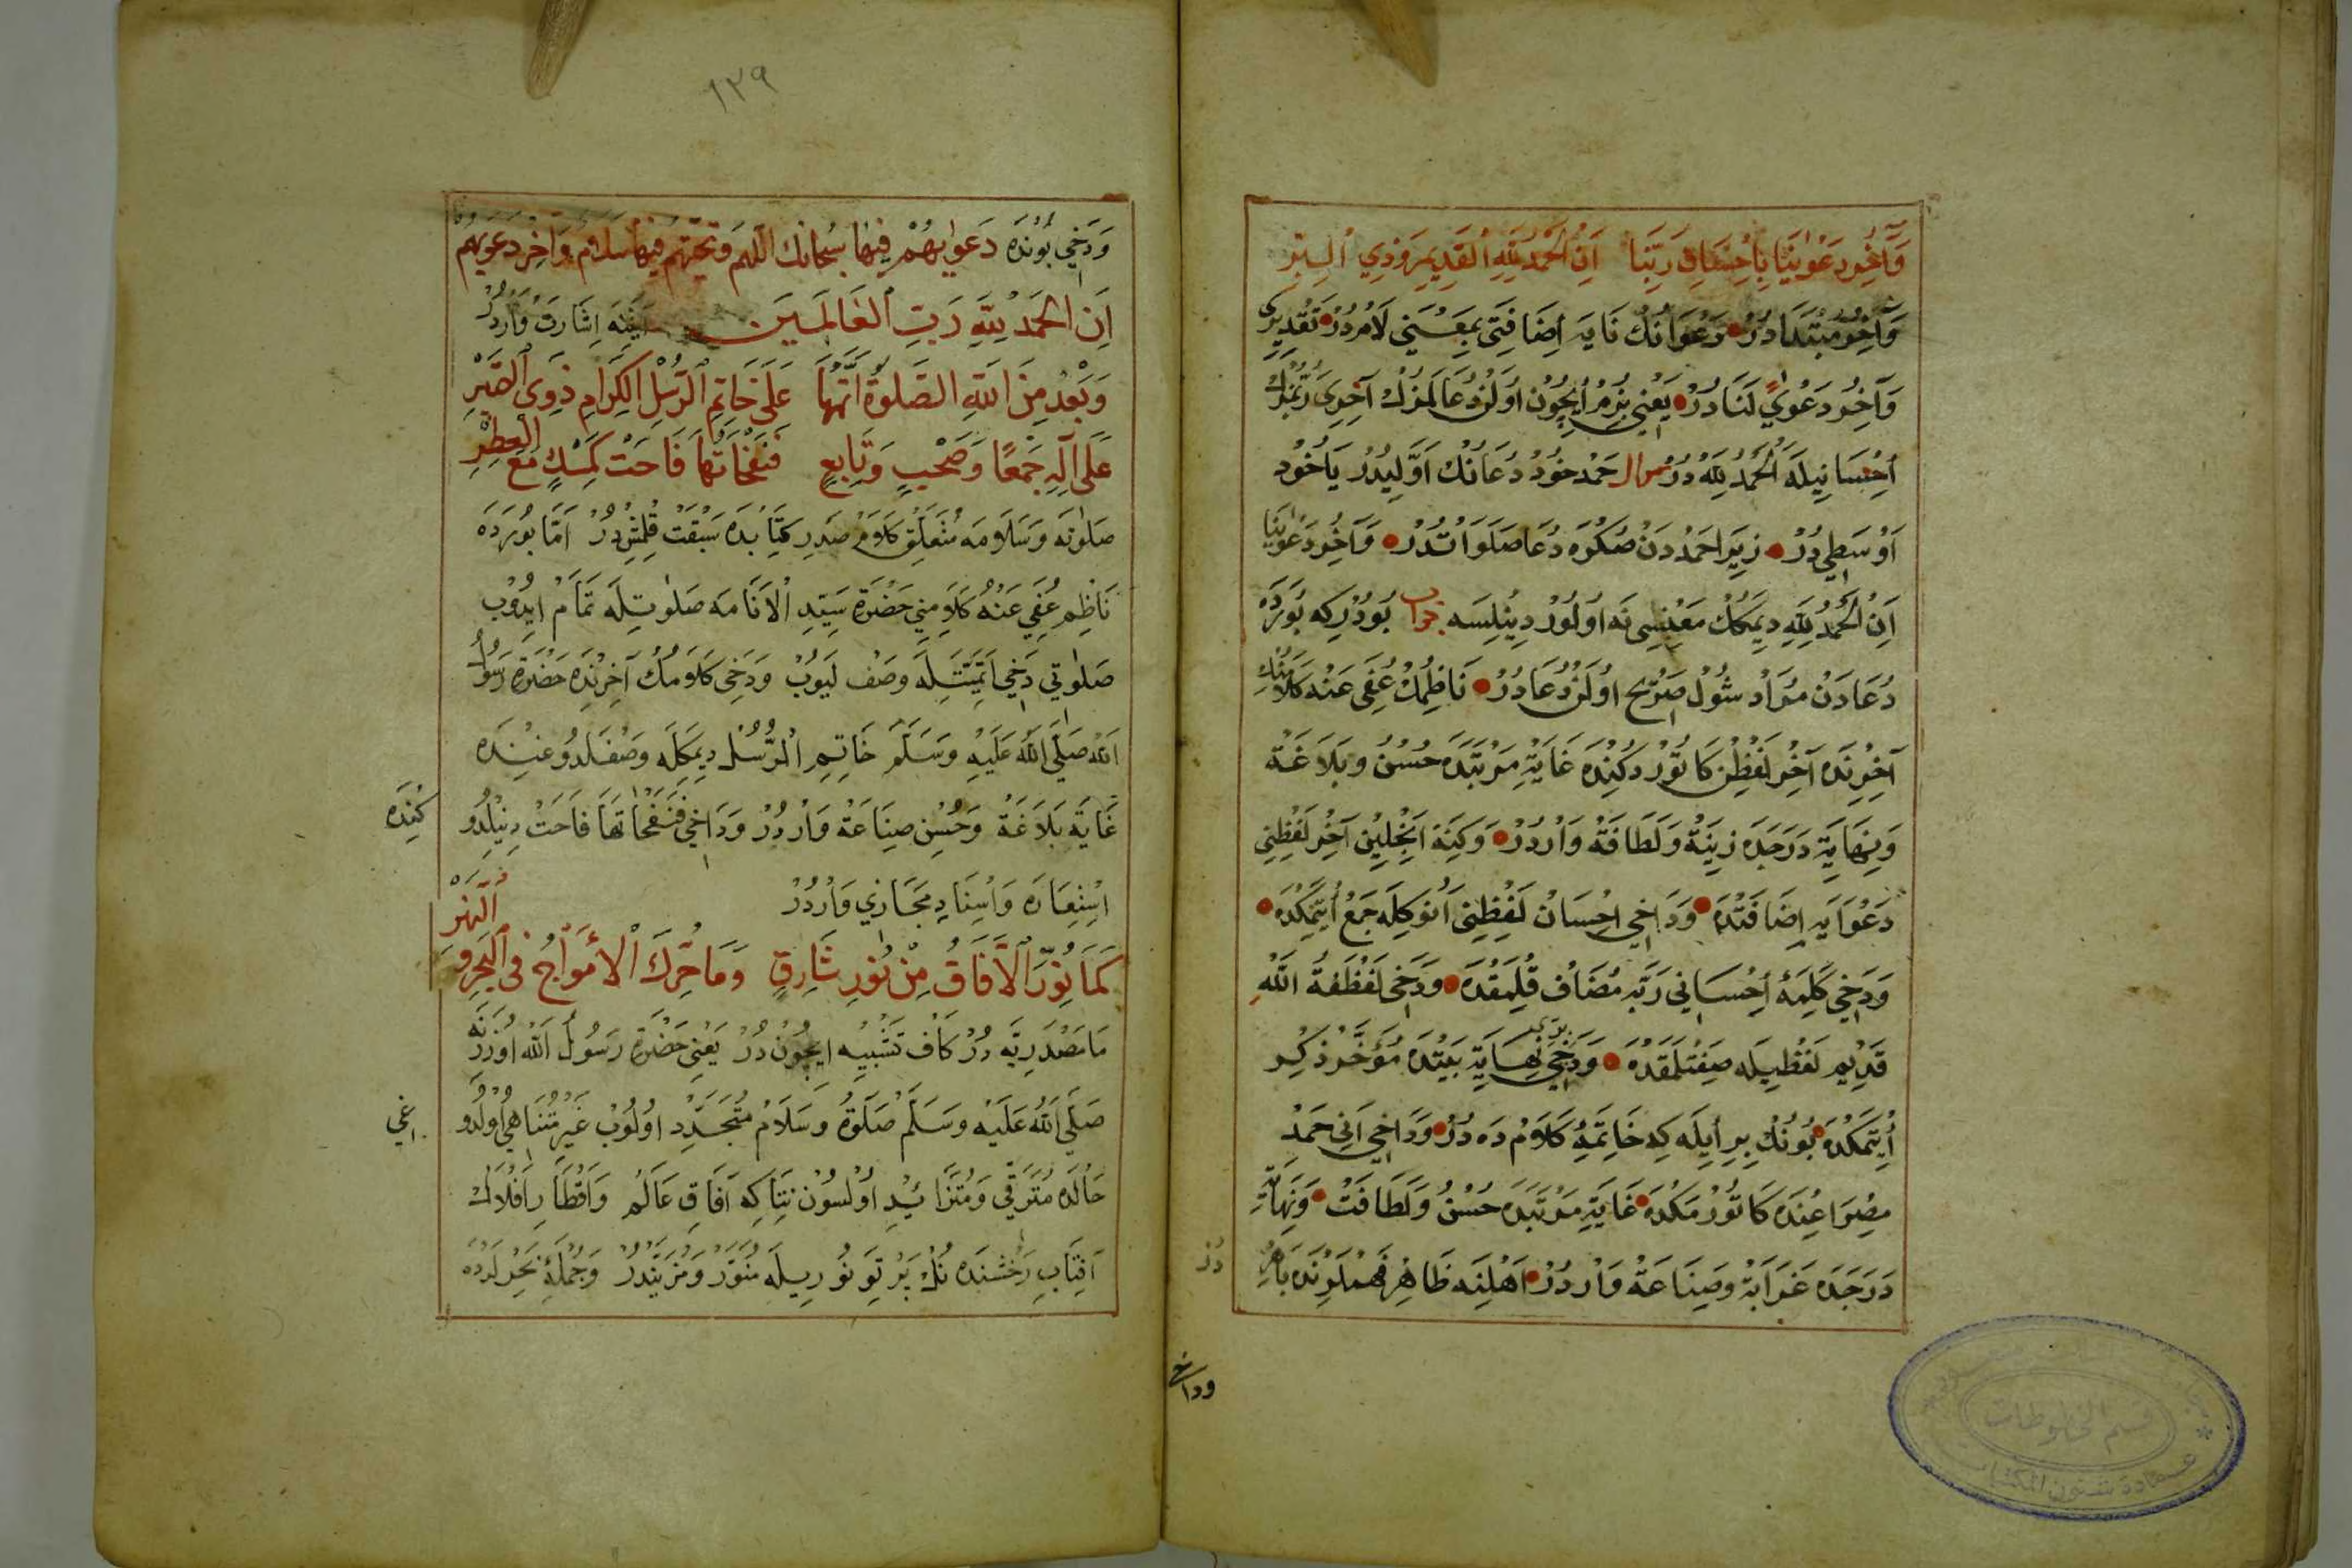 وَآخِرُ دَعْوَانَا بِاِحْسَانِ رَبِّنَا اَنِ الْحَمْدُ لِلّٰهِ الْقَدِيمِ وَذِي الْبِرِّ
وَآخِرُ مُبْتَدَادُرْ دَعْوَانُكْ نَايَه اِضَافَتِى بِمَعْنَيِ لَامْدُرْ تَقْدِيرِى
وَآخِرُ دَعْوًي لَنَادُرْ يَعْنِي بِزُمْ اِيچُونْ اَوْلَنْ دُعَالَرْمُزُكْ آخِرِى رَبِّمُزُكْ
اِحْسَانِيلَه اَلْحَمْدُ لِلّٰهِ دُرْ سوال حَمْد خُودْ دُعَانُكْ اَوَّلِيدُرْ يَاخُودْ
اَوْسَطِي دُرْ زِيرَا حَمْدْدَنْ صُكْرَه دُعَا صَلَوَاتْدُرْ وَآخِرُ دَعْوَانَا
اَنِ الْحَمْدُ لِلّٰهِ دِيمَكُكْ مَعْنِسِى نَه اُولُورْ دِينِلِسَه جواب بُودُرْكِه بُورَدَه
دُعَادَنْ مُرَادْ شُولْ صَرِيح اُولَنْ دُعَادُرْ نَاظِمُكْ عُفِيَ عَنْهُ كَلَامِنُكْ
آخِرِنْدَه آخِرُ لَفْظِنْ كَاتُورْدُكِنْدَه غَايَةِ مَرْتَبَدَه حُسْنُ وبَلَاغَةْ
وَنِهَايَةِ دَرَجَدَه زِينَةْ وَلَطَافَةْ وَارْدُرْ وَكِنَه اَنْجِلِيْن آخِرُ لَفْظِنِي
دَعْوَايَه اِضَافَتْدَه وَدَاخِي اِحْسَانْ لَفْظِنِى اَنُوكِلَه جَمْعْ اَيْتْمَكْدَه
وَدَخِي كَلِمَۀِ اِحْسَانِي رَبَّه مُضَافْ قُلْمَقْدَه وَدَخِي لَفْظَۀِ اللّٰهِ
قَدِيم لَفْظِيلَه صِفَتْلَمَقْدَه وَدَخِي نِهَايَةِ بَيْتْدَه مُؤَخَّرْ ذِكِر
اَيْتْمَكْدَه بُونُكْ بِرْاَيْلَه كِه خَاتِمَۀِ كَلَامْ دَه دُرْ وَدَاخِي اَنِي حَمْدْ
مِصْرَاعِنْدَه كَاتُورْمَكْدَه غَايَةِ مَرْتَبَدَه حُسْنُ وَلَطَافَتْ وَنِهَايَةِ
دَرَجَدَه غَرَابَةْ وصِنَاعَةْ وَارْدُرْ اَهْلِنَه ظَاهِرْ فَهْمْلَرِنْدَه بَاهِرْ
دُرْ
وداخ
١٣٩
وَدَخِي بُونْدَه دَعْوٰيهُمْ فِيهَا سُبْحَانَكَ اللّٰهُمَّ وَتَحِيَّتُهُمْ فِيهَا سَلَامٌ وَآخِرُ دَعْوٰيهُمْ
اَنِ الْحَمْدُ لِلّٰهِ رَبِّ الْعَالَمِينَ اِشَارَتْ وَارْدُرْ
وَبَعْدُ مِنَ اللّٰهِ الصَّلٰوةُ اَتَمُّهَا عَلَى خَاتِمِ الرُّسْلِ الْكِرَامِ ذَوِى الصَّبْرِ
عَلَى آلِهِ جَمْعًا وَصَحْبٍ وَتَابِعٍ فَنَفْحَاتُهَا فَاحَتْ كَمِسْكٍ مَعَ الْعِطْرِ
صَلٰوتَه وَسَلَامَه مُتَعَلِّقْ كَلَامْ صَدْرِ كِتَابْدَه سَبْقَتْ قِلْمِشْدُرْ اَمَّا بُورَدَه
نَاظِمِ عُفِيَ عَنْهُ كَلَامِنِي حَضْرَةِ سَيِّدِ الْاَنَامَه صَلٰوتِلَه تَمَامْ اِيدُوبْ
صَلٰوتِي دَخِي اَتَمِّيَّتِلَه وَصْف لَيُوبْ وَدَخِى كَلَامُكْ آخِرِنْدَه حَضْرَةِ رَسُولُ
اللّٰه صَلَّى اللّٰهُ عَلَيْهِ وَسَلَّمَ خَاتِمِ الرُّسْلْ دِيمَكِلَه وَصْفْلَدُوغِنْدَه
غَايَةِ بَلَاغَةْ وَحُسْنِ صِنَاعَةْ وَارْدُرْ وَدَاخِي فَنَفْحَاتُهَا فَاحَتْ دِينِلْدُو
كِنْدَه
اِسْتِعَارَه وَاِسْنَادِ مَجَازِي وَارْدُرْ
كَمَا نُوِّرَ الْآفَاقُ مِنْ نُورِ شَارِقٍ وَمَا حُرِّكَ الْأَمْوَاجُ فِى الْبَحْرِ وَالنَّهْرِ
مَامَصْدَرِيَّه دُرْ كَافْ تَشْبِيه اِيچُونْ دُرْ يَعْنِي حَضْرَةِ رَسُولُ اللّٰه اوُزَرِنَه
صَلَّى اللّٰهُ عَلَيْهِ وَسَلَّمَ صَلٰوةُ وَسَلَامْ مُتَجَدِّدِ اوُلُوبْ غَيْرِ مُتَنَاهِي اُولْدُو
غي
حَالَدَه مُتَرَقِّي وَمُتَزَايِدِ اوُلْسُونْ نِتَاكِه آفَاقِ عَالَمْ وَاَقْطَارِ اَفْلَاكْ
آفِتَابِ رَخْشَنْدَه نُكْ پَرْتَوِ نُورِيلَه مُنَوَّرْ وَمُزَيَّنْدُرْ وَجُمْلَۀِ بَحْرلَرْدَه
قسم المخطوطات
عمادة شئون المكتبات